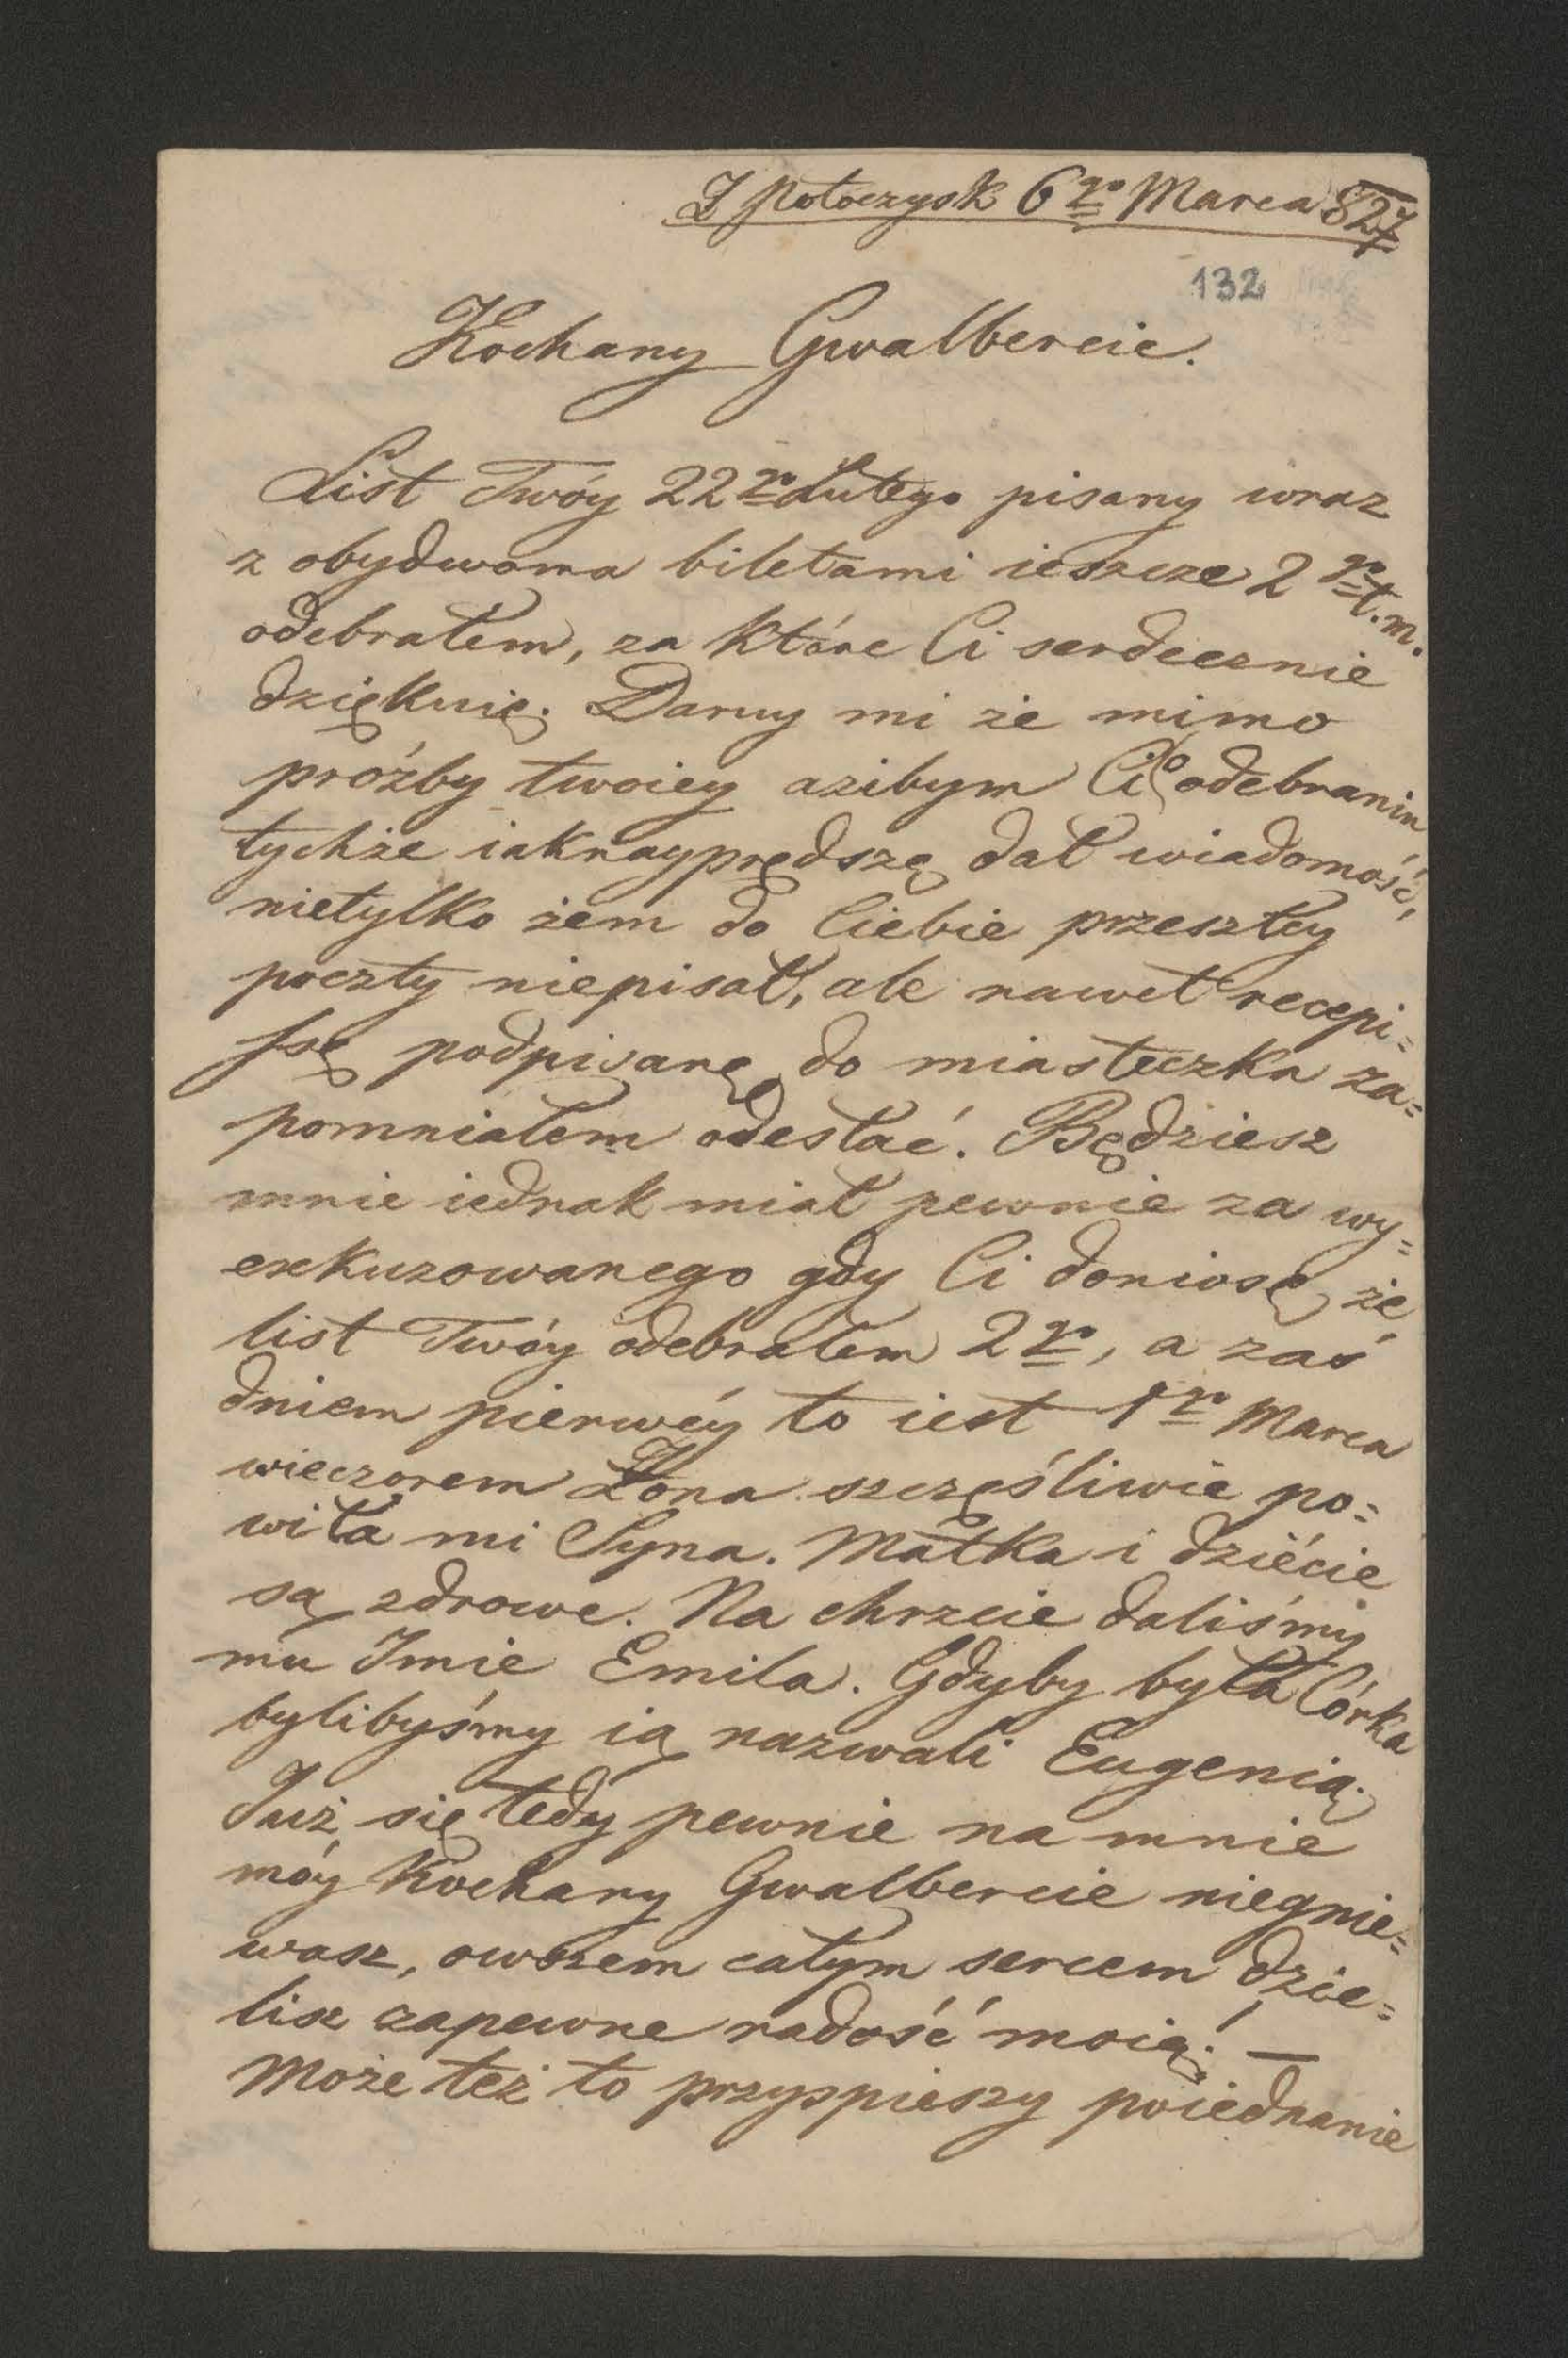 Z Potoczysk 6go Marca 827
132
Kochany Gwalbercie.
List Twóy 22go Lutego pisany wraz
z obydwoma biletami ieszcze 2go t. m.
odebrałem, za które Ci serdecznie
dziękuię. Daruy mi że mimo
prośby twoiey azibym Ci o odebraniu
tychże iaknayprędszę dał wiadomość,
nietylko żem do Ciebie przeszłey
poczty niepisał, ale nawet recepi=
ssę podpisanę do miasteczka za=
pomniałem odesłać. Będziesz
mnie iednak miał pewnie za wy=
exkuzowanego gdy Ci doniosę że
list Twóy odebrałem 2go, a zaś
dniem pierwéy to iest 1go Marca
wieczorem Żona szczęśliwie po=
wiła mi Syna. Matka i dziécie
są zdrowe. Na chrzcie daliśmy
mu Imie Emila. Gdyby była Córka
bylibyśmy ią nazwali Eugenią.
Już się tedy pewnie na mnie
móy Kochany Gwalbercie niegnie=
wasz, owszem całym sercem dzie=
lisz zapewne radość moią! —
Może też to przyspieszy poiednanie